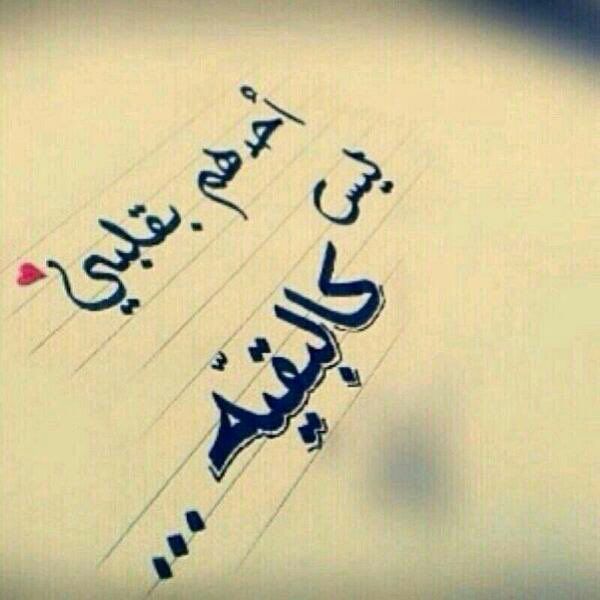 أحُدهم بقلبي
ليس
كالبقيّه ...